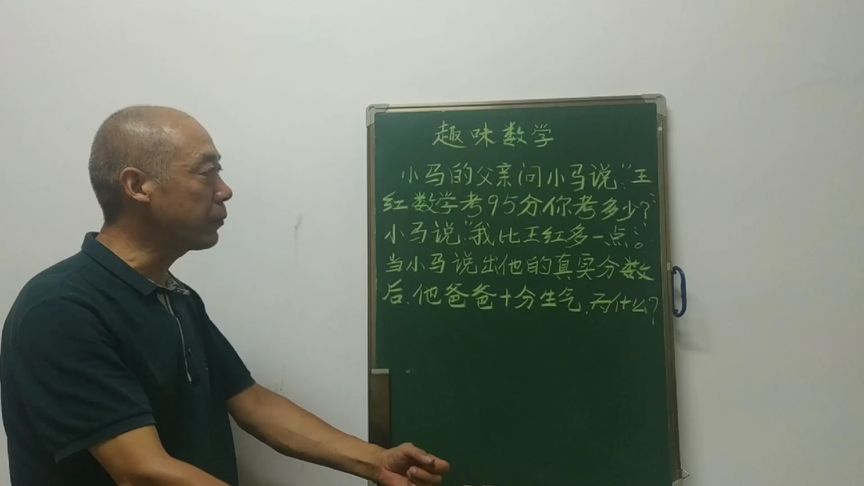 趣味数学
小马的父亲问小马说:"王
红数学考95分你考多少?"
小马说:"我比王红多一点。"
当小马说出他的真实分数
后,他爸爸十分生气,为什么?